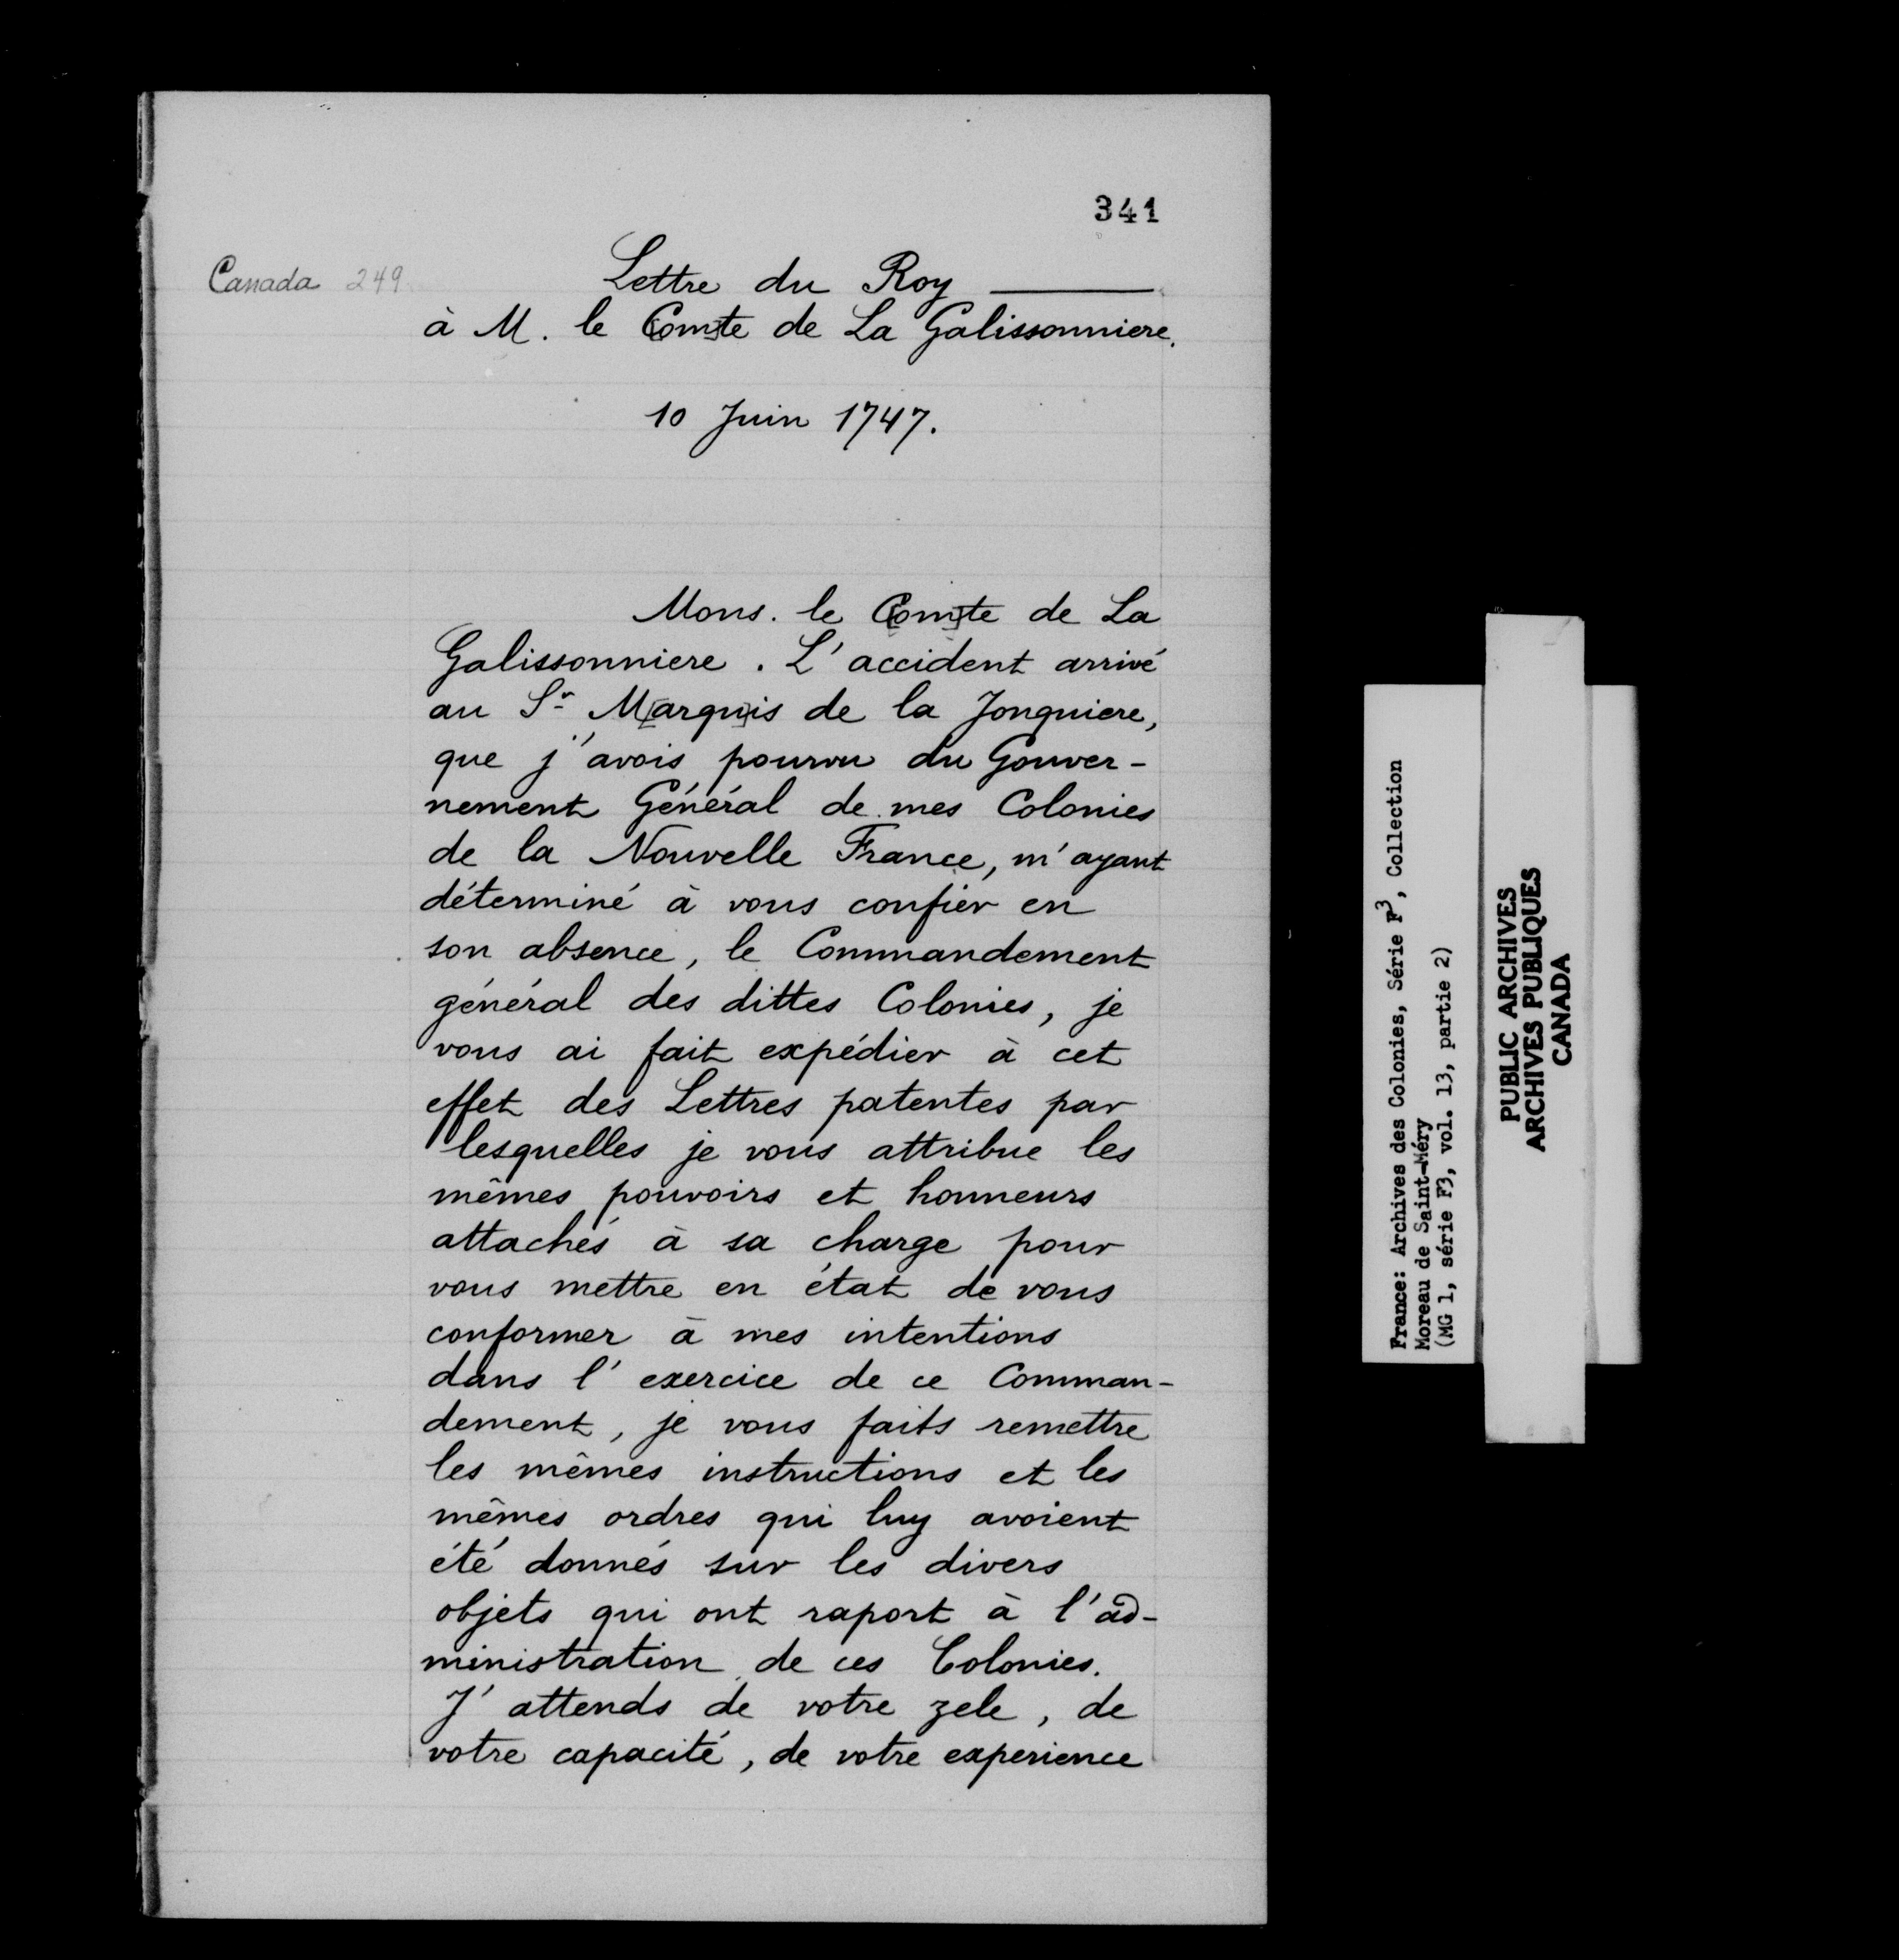 341
Canada 249
Lettre du Roy
à M. le C[om]te de La Galissonniere.
10 Juin 1747.
Mons. le C[om]te de La
Galissonniere. L'accident arrivé
au Sr M[arqu]is de la Jonquiere,
que j'avois pourvu du Gouver-
nement Général de mes Colonies
de la Nouvelle France, m'ayant
déterminé à vous confier en
son absence, le Commandement
général des dittes Colonies, je
vous ai fait expédier à cet
effet des Lettres patentes par
lesquelles je vous attribue les
mêmes pouvoirs et honneurs
attachés à sa charge pour
vous mettre en état de vous
conformer à mes intentions
dans l'exercice de ce Comman-
dement, je vous faits remettre
les mêmes instructions et les
mêmes ordres qui luy avoient
été donnés sur les divers
objets qui ont raport à l'ad-
ministration de ces Colonies.
J'attends de votre zele, de
votre capacité, de votre experience
France: Archives des Colonies, Série F3, Collection
Moreau de Saint-Méry
(MG 1, série F3, vol. 13, partie 2)
PUBLIC ARCHIVES
ARCHIVES PUBLIQUES
CANADA